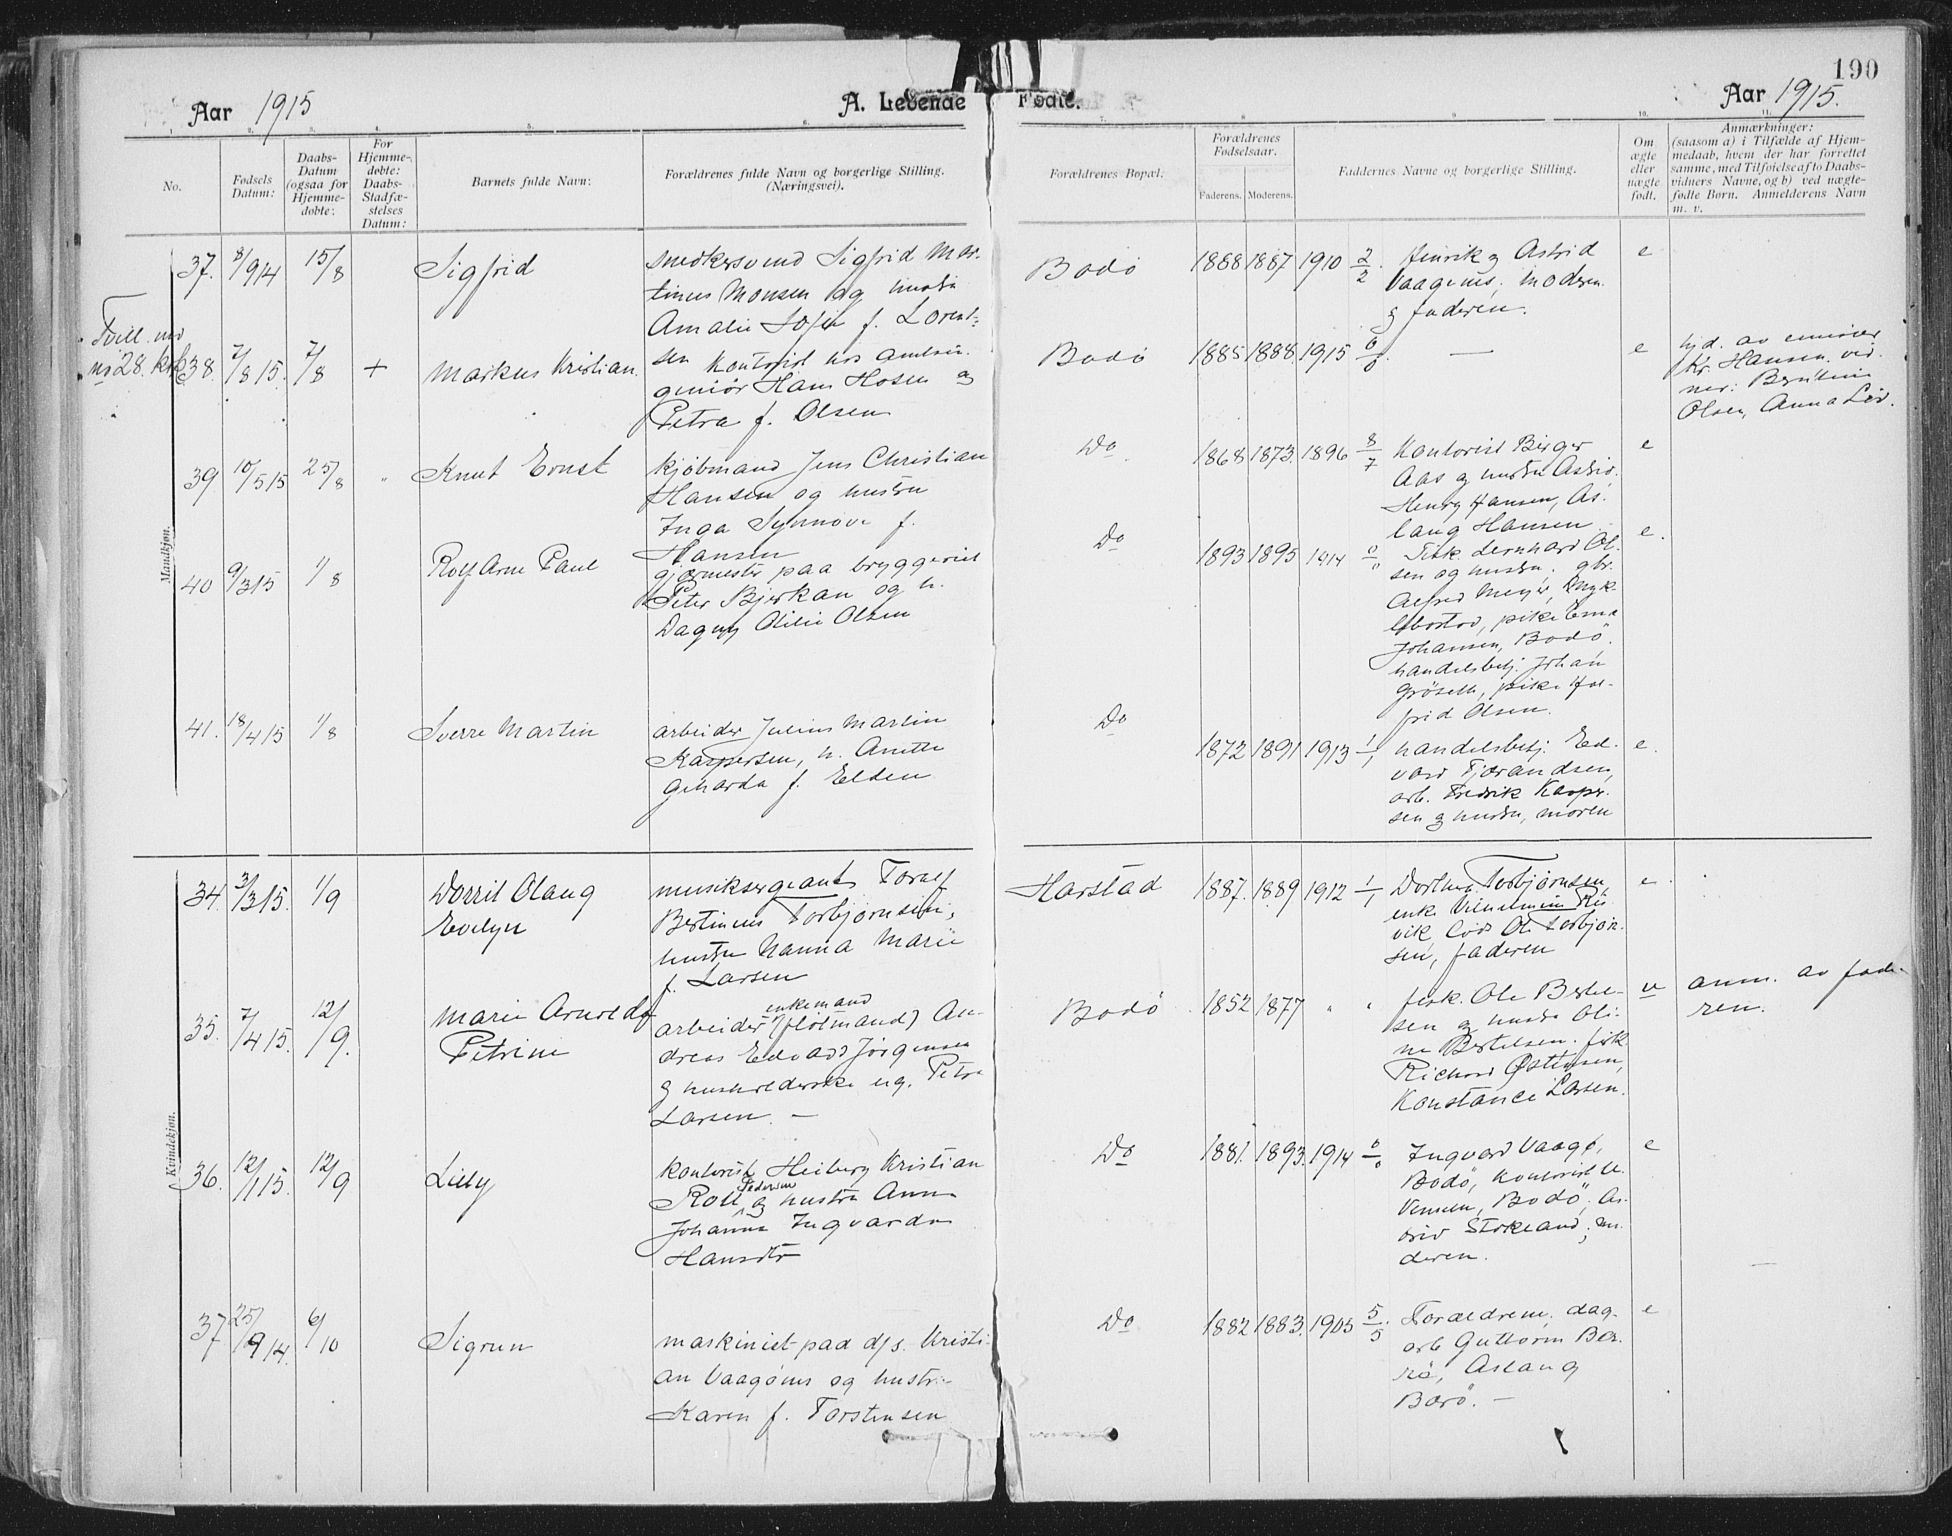 190
Aar 1915
A. Levende
Fødte.
Aar 1915.
1. 2. 3. 4. 5. 6. 7. 8. 9. 10. 11.
No.
Fødsels
Datum:
Daabs-
Datum
(ogsaa for
Hjemme-
døbte:
For
Hjemme-
døbte:
Daabs-
Stadfæ-
stelses
Datum:
Barnets fulde Navn:
Forældrenes fulde Navn og borgerlige Stilling.
(Næringsvei).
Forældrenes Bopæl:
Forældrenes
Fødselsaar.
Faderens. Moderens.
Faddernes Navne og borgerlige Stilling.
Om
ægte
eller
uægte
født.
Anmærkninger:
(saasom a) i Tilfælde af Hjem-
medaab, hvem der har forrettet
samme, med Tilføielse af to Daabs-
vidners Navne, og b) ved uægte-
fødte Børn. Anmelderens Navn
m. v.
Mandkjøn.
37. 8/9 14 15/8 Sigfrid
snedkersvend Sigfrid Mar-
tinus Monsen og hustru
Amalie Sofie f. Lorent-
sen
Bodö 1888 1887 1910 2/2.
Henrik og Astrid
Vaagenes, moderen
og faderen.
e
Tvill. med
no 28. kvk.
38. 7/8 15. 7/8 + Markus Kristian.
Kontorist hos amtsin-
geniør Hans Hosen og
Petra f. Olsen
Bodö 1885 1888. 1915 0/0. —
e
hjd. av emissær
Kr. Hansen. vid-
ner: Berntine
Olsen, Anna
39 10/5 15 25/8 " Knut Ernst
kjöbmand Jens Christian
Hansen og hustru
Inga Synnöve f.
Hansen
Do 1868 1873. 1896 8/7
Kontorist Birger
Aas og hustru Astrid,
Henry Hansen, As-
laug Hansen
e
40 9/3 15 1/8 Rolf Arne Paul
gjærmester paa bryggeriet
Peter Bjerkan og h.
Dagny Otilie Olsen
Do 1893 1895 1914 0/0
Fisk. Lernhard Ol-
sen og hustru. gbr.
Alfred Meyer,
pike Erna
Johansen, Bodö.
handelsbetj. Johan
Gröseth, pike Hal-
frid Olsen.
e.
41. 18/4 15 1/8 Sverre Martin
arbeider Julius Martin
Kaspersen, h. Anette
Geharda f. Elden
Do 1872 1891 1913 1/1
handelsbetj. Ed-
vard Fjærandsen,
arb. Fredrik Kasper-
sen og hustru, moren
e.
Kvindekjøn.
34. 3/3 15. 1/9 Dorrit Olaug
Evelyn
musiksergeant Toralf
Bertinius Torbjørnsen,
hustru Nanna Marie
f. Larsen
Harstad 1887. 1889 1912 1/1
Dorthea Torbjørnsen,
enke Vilhelmine Ris-
vik, Ole Torbjörn-
sen, faderen
e
35. 7/4 15. 12/9. Marie Arnolda
Petrine
enkemand
arbeider (flötmand) An-
dreas Edvard Jörgensen
og husholderske ug. Petra
Larsen. —
Bodö 1852 1877 " "
fisk. Ole Bertel-
sen og hustru Oli-
ne Bertelsen. fisk.
Richard Østensen,
Konstance Larsen.
u
anm. av fade-
ren.
36. 12/1 15. 12/9 Lilly
kontorist Heiberg Kristian
Pedersen
Roll og hustru Anna
Johanna Ingvarda
Hansdtr
Do 1881. 1893. 1914 0/0
Ingvard Vaagö,
Bodö, kontorist U.
Bodö, As-
trid Stokland, mo-
deren.
e
37 25/9 14. 6/10 Sigrun
maskinist paa d/s. Kristi-
an Vaagönes og hustru
Karen f. Torstensen
Do 1882 1883. 1905 5/5.
Forældrene, dag-
arb. Guttorm Bar-
rö, Aslaug
Barö. —
e